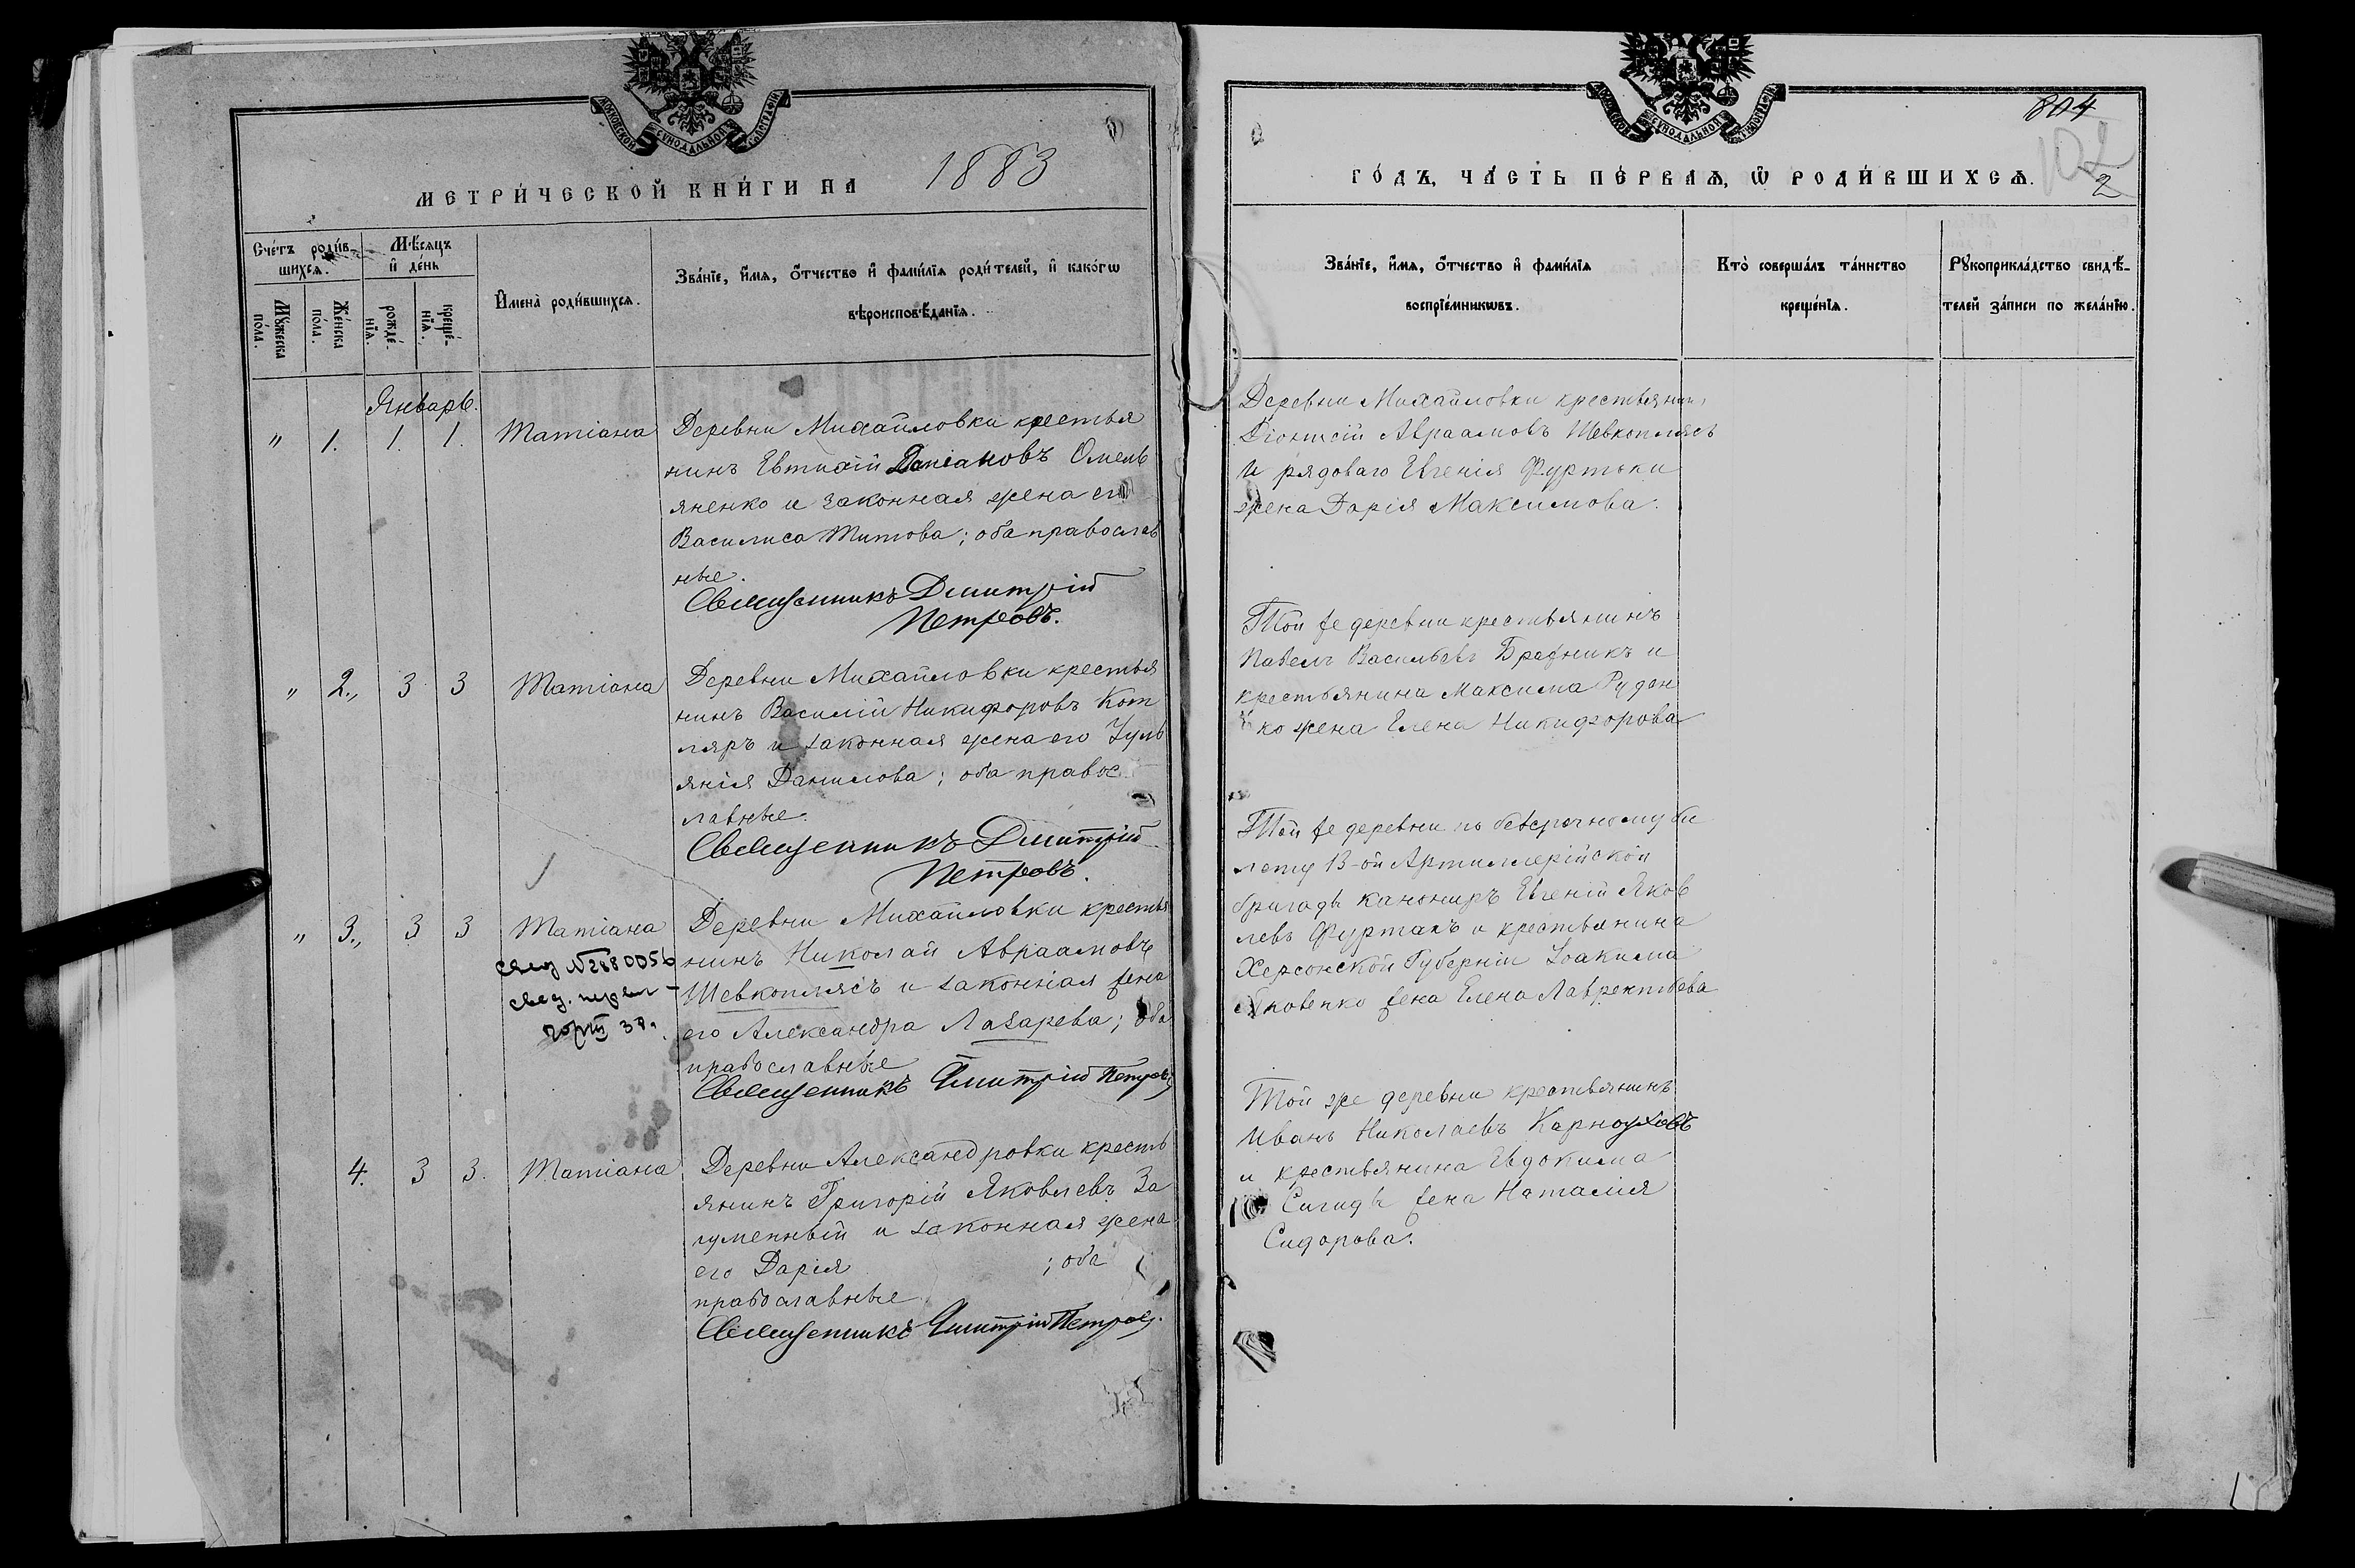 МОСКОВСКОЙ СѴНОДАЛЬНОЙ ТѴПОГРАФІИ
МЕТРИ́ЧЕСКОЙ КНИ́ГИ НА 1883
Сче́тъ роди́в-
шихсѧ.
Мѣ́сѧцъ
и҆ де́нь
И҆мена̀ роди́вшихсѧ.
Зва́нїе, и҆́мѧ, ѻ҆́тчество и҆ фами́лїѧ роди́телей, и҆ како́гѡ
вѣроисповѣ́данїѧ.
Мꙋ́жеска
пола.
Же́нска
по́ла.
рожде́-
нїѧ.
креще́-
нїѧ.
Январь.
" 1. 1. 1. Татіана Деревни Михайловки крестья
нинъ Евтихій Даміановъ Омель
яненко и законная жена его
Василиса Титова; оба православ
ные.
Священникъ Дмитрій
Петровъ.
" 2., 3 3 Татіана Деревни Михайловки крестья
нинъ Василій Никифоровъ Кот
ляръ и законная жена его Іуль
янія Данилова; оба правос
лавные.
Священникъ Дмитрій
Петровъ.
" 3., 3 3 Татіана Деревни Михайловки крестья
нинъ Николай Авраамовъ
Шевкоплясъ и законная жена
его Александра Лазарева; оба
православные
Священникъ Дмитрій Петровъ
4. 3 3. Татіана Деревни Александровки кресть
янинъ Григорій Яковлевъ За
гуменный и законная жена
его Дарія ; оба
православные
Священникъ Дмитрій Петровъ.
804
102
2
МОСКОВСКОЙ СѴНОДАЛЬНОЙ ТѴПОГРАФІИ
ГО́ДЪ, ЧА́СТЬ ПЕ́РВАѦ, Ѽ РОДИ́ВШИХСѦ.
Зва́нїе, и҆́мѧ, ѻ҆́тчество и҆ фами́лїѧ
воспрїе́мникѡвъ.
Кто̀ соверша́лъ та́инство
креще́нїѧ.
Рꙋкоприкла́дство свидѣ́-
телей за́писи по жела́нїю.
Деревни Михайловки крестьянинъ
Діонисій Авраамовъ Шевкоплясъ
и рядоваго Евгенія Фуртьки
жена Дарія Максимова.
Той же деревни крестьянинъ
Павелъ Васильевъ Бражникъ и
крестьянина Максима Руден
ко жена Елена Никифорова
Той же деревни по безсрочному би
лету 13-ой Артиллерійской
бригады канониръ Евгеній Яков
левъ Фуртакъ и крестьянина
Херсонской Губерніи Іоакима
Яковенко жена Елена Лаврентьева
Той же деревни крестьянинъ
Иванъ Николаевъ Карнауховъ
и крестьянина Евдокима
Сигиды жена Наталія
Сидорова.